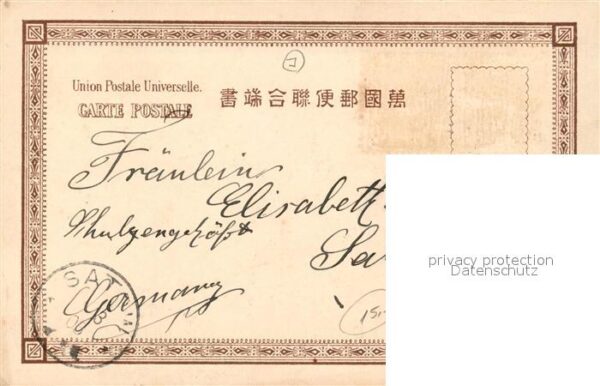 Union Postale Universelle.
CARTE POSTALE
書端合聯便郵國萬
Fräulein
Elisabeth
Sa
Germany
SAT
privacy protection
Datenschutz